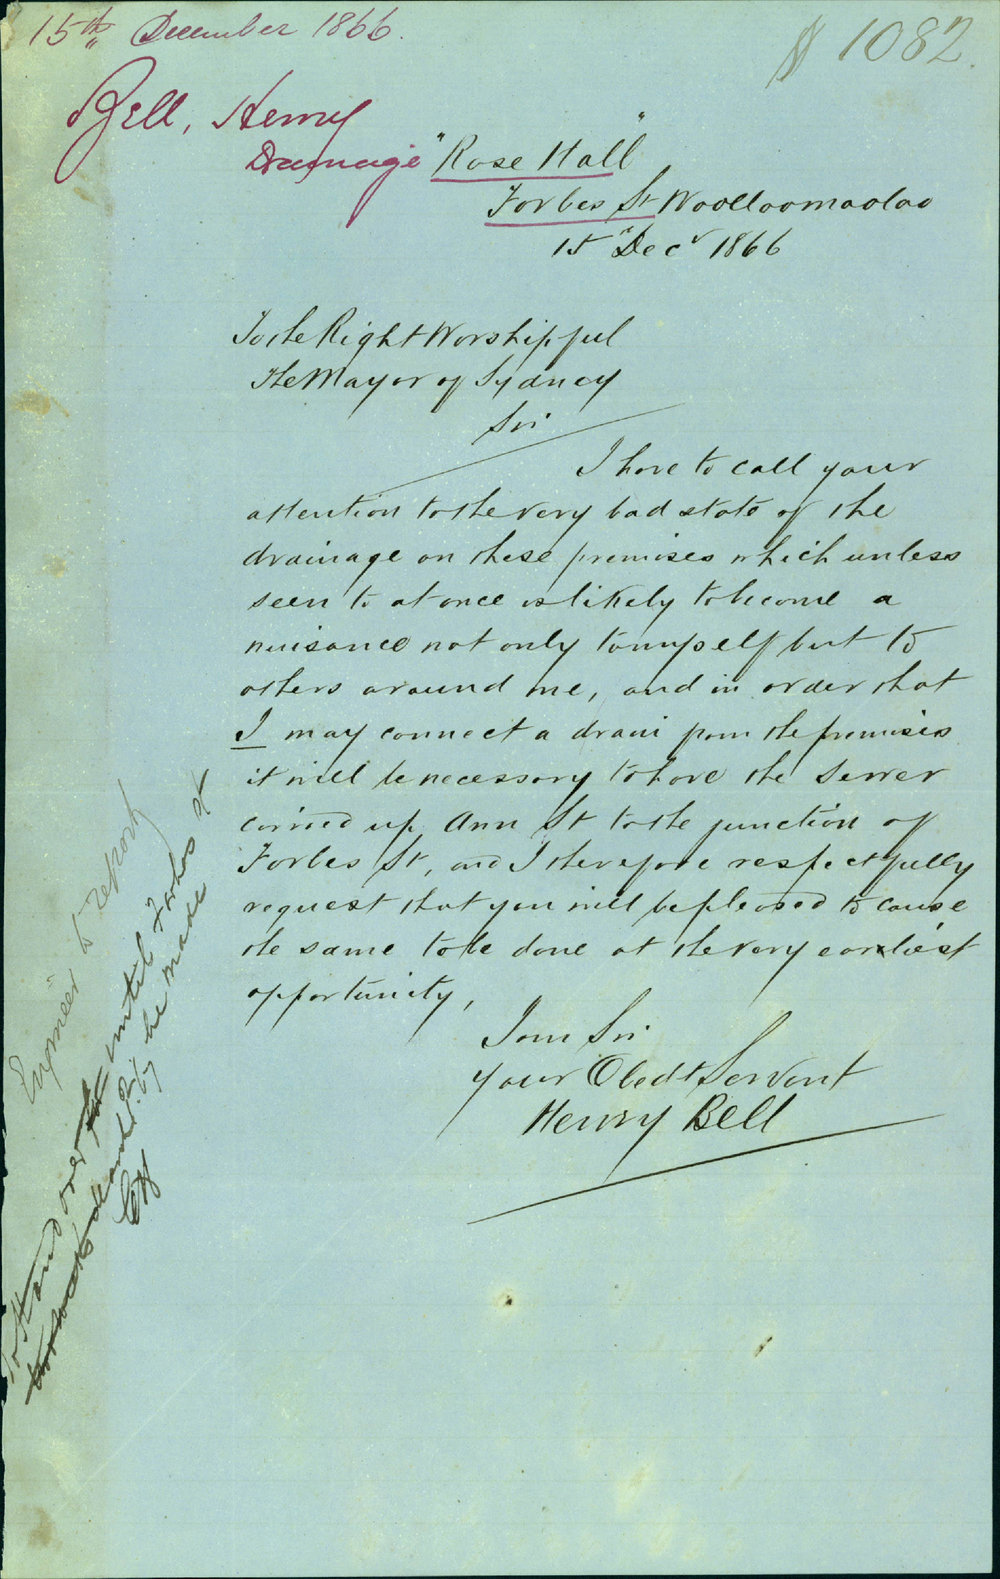 15th December 1866.
1082.
Bell, Henry
Drainage
"Rose Hall"
Forbes St Woolloomooloo
15 Decr 1866
To the Right Worshipful
The Mayor of Sydney
Sir
I have to call your
attention to the very bad state of the
drainage on these premises which unless
seen to at once is likely to become a
nuisance not only to myself but to
others around me, and in order that
I may connect a drain from the premises
it will be necessary to have the sewer
carried up Ann St to the junction of
Forbes St, and I therefore respectfully
request that you will be pleased to cause
the same to be done at the very earliest
opportunity,
I am Sir
Your Obedt Servant
Henry Bell
Engineer to Report
To Stand over until Forbes St
be made